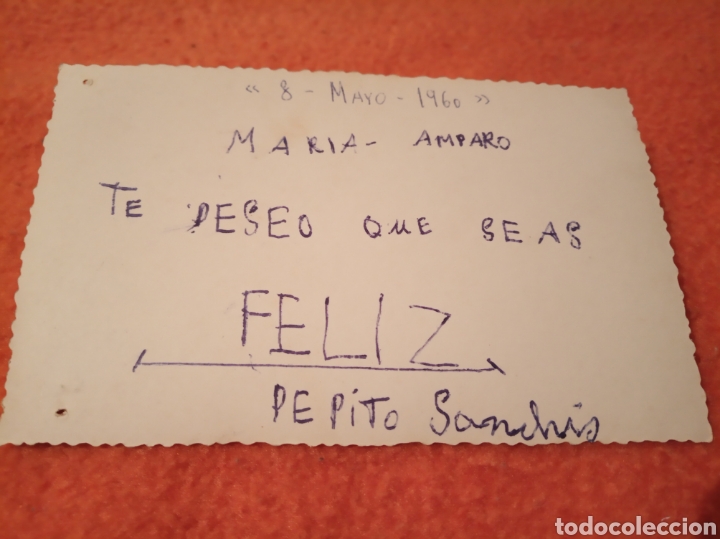 « 8 - MAYO - 1960 »
MARIA - AMPARO
TE DESEO QUE SEAS
FELIZ
PEPiTO Sanchis
todocoleccion